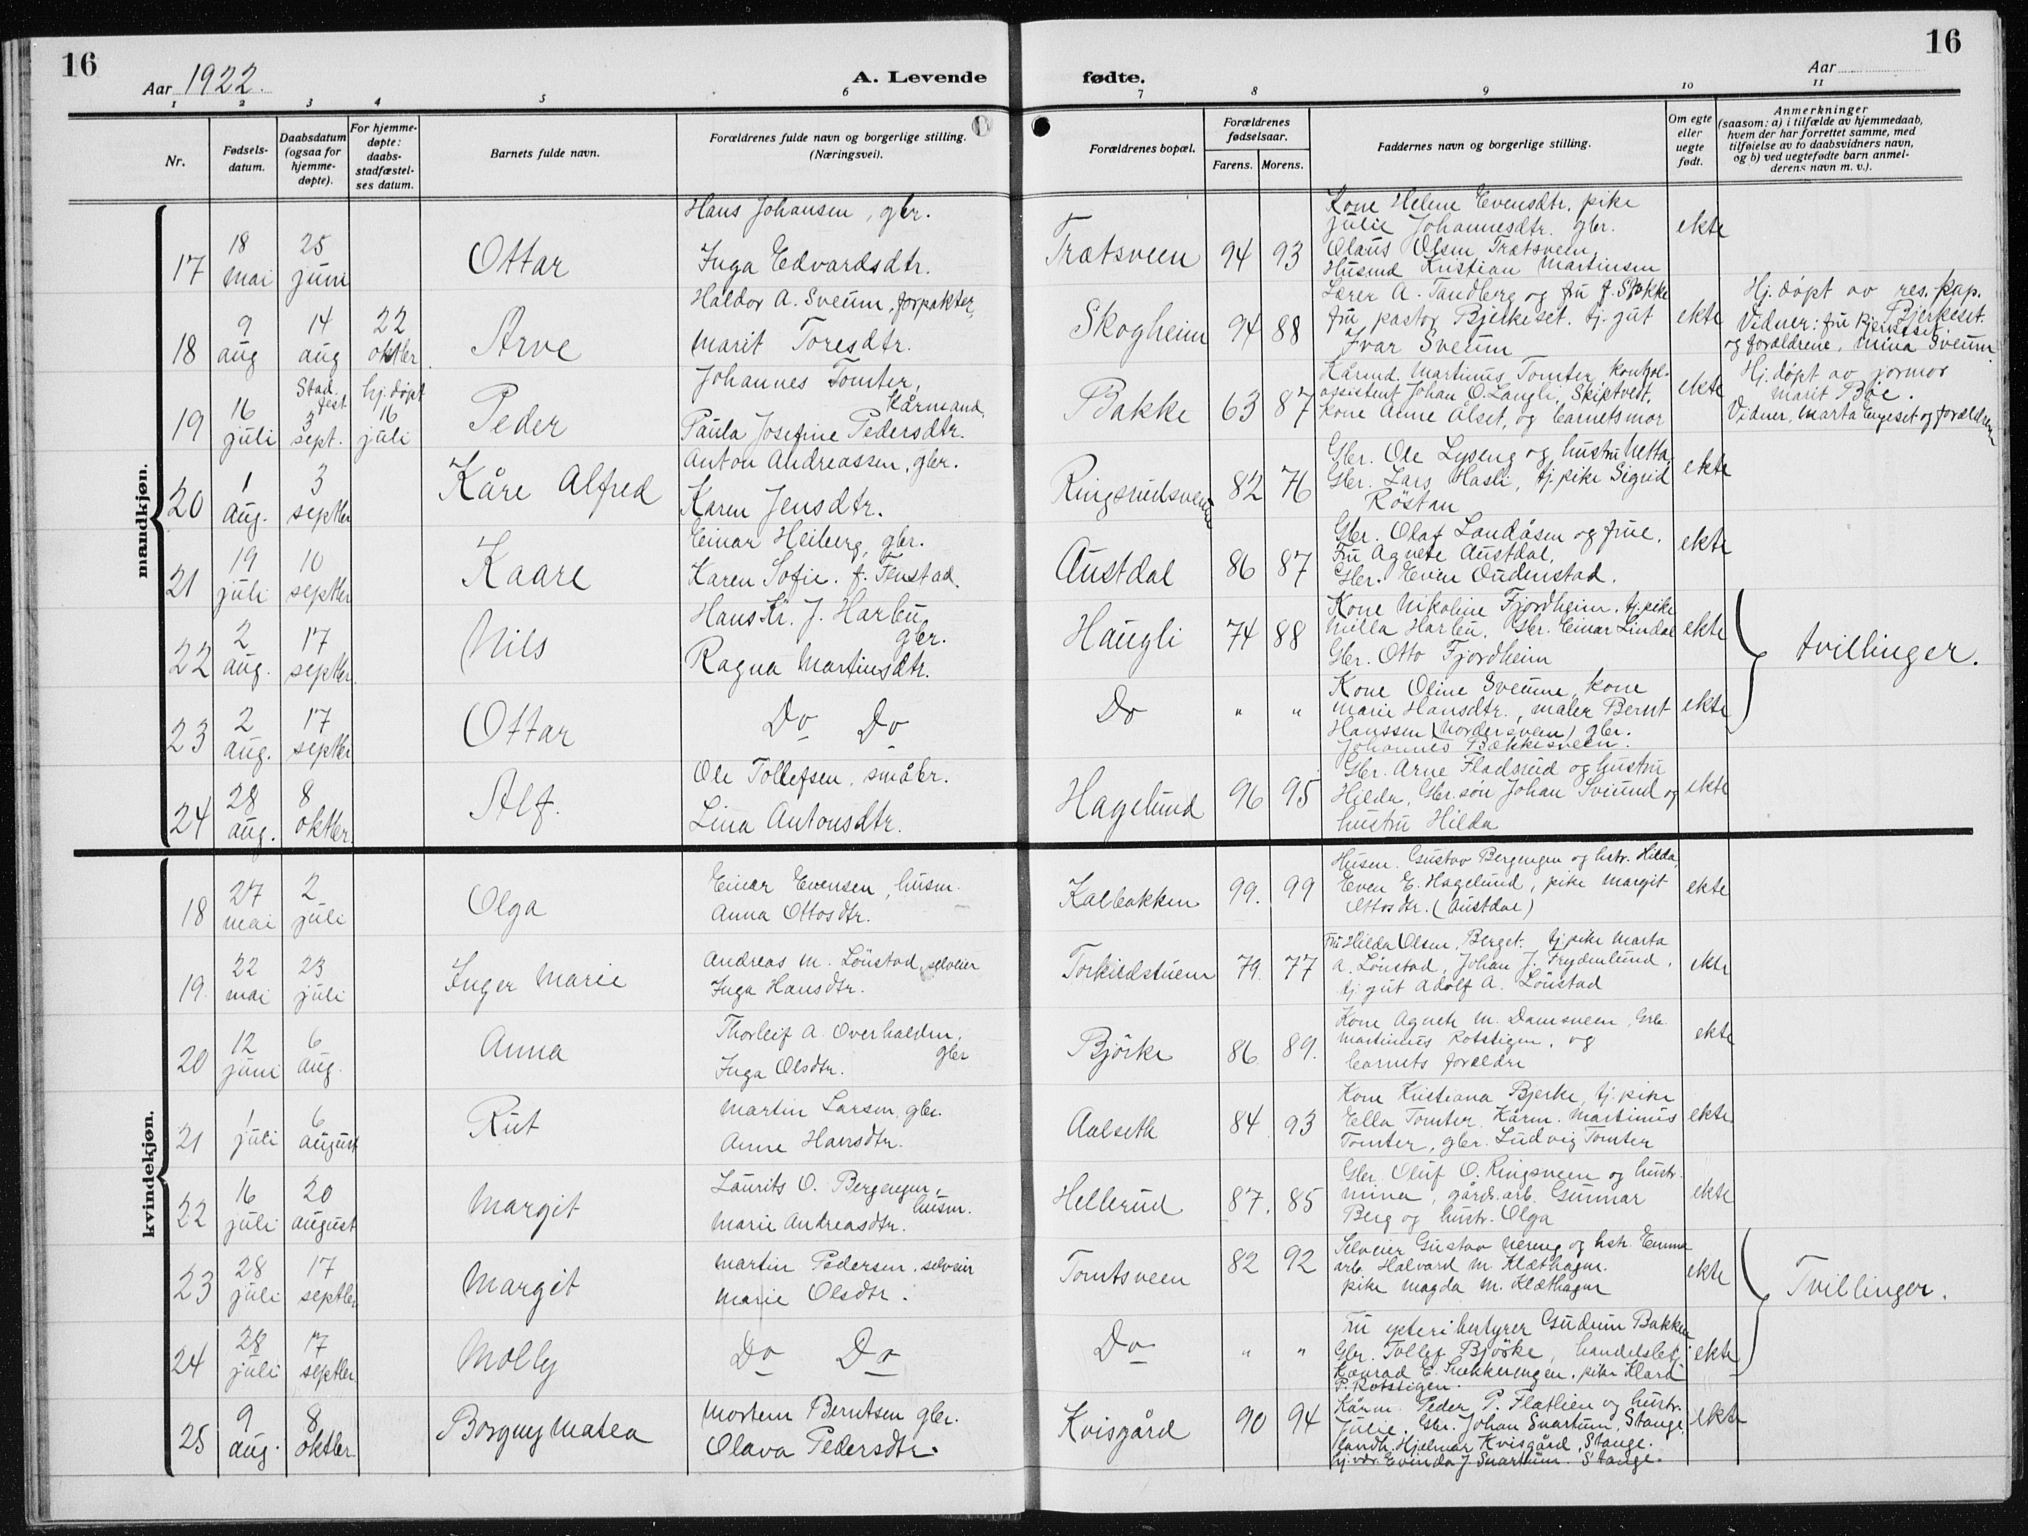 16
16
Aar 1922.
A. Levende fødte.
Aar
1 2 3 4 5 6 7 8 9 10 11
Nr.
Fødsels-
datum.
Daabsdatum
(ogsaa for
hjemme-
døpte).
For hjemme-
døpte:
daabs-
stadfæstel-
ses datum.
Barnets fulde navn.
Forældrenes fulde navn og borgerlige stilling.
(Næringsvei).
Forældrenes bopæl.
Forældrenes
fødselsaar.
Farens. Morens.
Faddernes navn og borgerlige stilling.
Om egte
eller
uegte
født.
Anmerkninger
(saasom: a) i tilfælde av hjemmedaab,
hvem der har forrettet samme, med
tilføielse av to daabsvidners navn,
og b) ved uegtefødte barn anmel-
derens navn m. v.).
mandkjøn.
17
18 mai
25 juni
Ottar
Hans Johansen, gbr.
Inga Edvardsdtr.
Trætsveen
94 93
Kone Helene Evensdtr, pike
Julie Johannesdtr. gbr.
Olaus Olsen Trætsveen,
Husmd Kristian Martinsen
ekte
18
9 aug
14 aug
22 oktbr.
Arve
Haldor A. Sveum, forpakter,
Marit Toresdtr.
Skogheim
94 88
Lærer A. Tandberg og fru f. Stokke
fru pastor Bjerkeset. tj. gut
Ivar Sveum
ekte
Hj. døpt av res. kap.
Bjerkeset.
Vidner: fru Bjerkeset
og forældrene, Mina Sveum
19
16 juli
Stad.fest.
3 sept.
hj. døpt
16 juli
Peder
Johannes Tomter,
kårmand
Paula Josefine Pedersdtr.
Bakke
63 87
Kårmd. Martinus Tomter, kontrol-
assistent Johan O. Langli, Skiptvet,
kone Anne Alset, og barnets mor
ekte
Hj. døpt av jormor
Marit Bøe.
Vidner, Marta Engeset og forældrene
20
1 aug.
3 septbr
Kåre Alfred
Anton Andreassen, gbr.
Karen Jensdtr.
Ringsrudsveen
82 76
Gbr. Ole Lyseng og hustru Netta
Gbr. Lars Hasli, tj. pike Sigrid
Röstan
ekte
21
19 juli
10 septbr
Kaare
Einar Heiberg, gbr.
Karen Sofie. f. Finstad.
Austdal
86 87
Gbr. Olaf Landåsen og frue.
Fru Agnete Austdal,
Gbr. Even Oudenstad.
ekte
22
2 aug.
17 septbr.
Nils
Hans Kr. J. Harbu
gbr.
Ragna Martinsdtr.
Haugli
74 88
Kone Nikoline Fjordheim. tj. pike
Milla Harbu. Gbr. Einar Lindal
Gbr. Otto Fjordheim
ekte
tvillinger.
23
2 aug.
17 septbr
Ottar
Do Do
Do
" "
Kone Oline Sveum, kone
Marie Hansdtr., maler Bernt
Hanssen (Nordersveen) gbr.
Johannes Bækkisveen.
ekte
24
28 aug.
8 oktbr.
Alf.
Ole Tollefsen, småbr.
Lina Antonsdtr.
Hagelund
96 95
Gbr. Arne Fladsrud og hustru
Hilda, Gbr. søn Johan Sviund og
hustru Hilda
ekte
kvindekjøn.
18
27 mai
2 juli
Olga
Einar Evensen, husm.
Anna Ottosdtr.
Kalbakken
99. 99
Husm. Gustav Bergengen og hstr. Hilda,
Even E. Hagelund, pike Margit
Ottosdtr. (Austdal)
ekte
19.
22 mai
23 juli
Inger Marie
Andreas M. Lönstad, selveier
Inga Hansdtr.
Torkildstuen
79. 77
Fru Hilda Olsen, Berget. tj. pike Marta
A. Lönstad, Johan J. Frydenlund,
tj. gut Adolf A. Lönstad
ekte
20
12 juni
6 aug.
Anna
Thorleif A. Overhalden,
gbr
Inga Olsdtr.
Björke
86 89.
Kone Agnete M. Damsveen, Gbr.
Martinus Rotstigen, og
barnets foreldre
ekte
21
1 juli
6 august
Rut
Martin Larsen, gbr.
Anne Hansdtr.
Aalseth
84 93
Kone Kristiana Bjerke, tj. pike
Ella Tomter, Kårm. Martinus
Tomter, gbr. Ludvig Tomter
ekte
22
16 juli
20 august
Margit
Laurits O. Bergengen,
husm.
Marie Andreasdtr.
Hellerud
87. 85
Gbr. Oluf O. Ringsveen og hustr.
Mina, gårds.arb. Gunnar
Berg og hustr. Olga
ekte
23
28 juli
17 septbr
Margit
Martin Pedersen, selveier
Marie Olsdtr.
Tomtsveen
82 92
Selveier Gustav Nereng og hstr. Emma
arb. Halvard M. Klæthagen.
pike Magda M. Klæthagen
ekte
Tvillinger.
24
28 juli
17 septbr.
Molly
Do Do
Do
" "
Fru Gudrun Bakken
Gbr. Tollef Björke, handelsbetj.
Konrad E. Snekkerengen, pike Klara
P. Rotstigen.
ekte
25
9 aug.
8 oktbr.
Borgny Matea
Morten Berntsen gbr.
Olava Pedersdtr.
Kvisgård
90 94
Kårm. Peder P. Flatlien og hustr.
Julie, Gbr. Johan Svartum, Stange,
landh. Hjalmar Kvisgård, Stange.
J. Svartum. Stange.
ekte